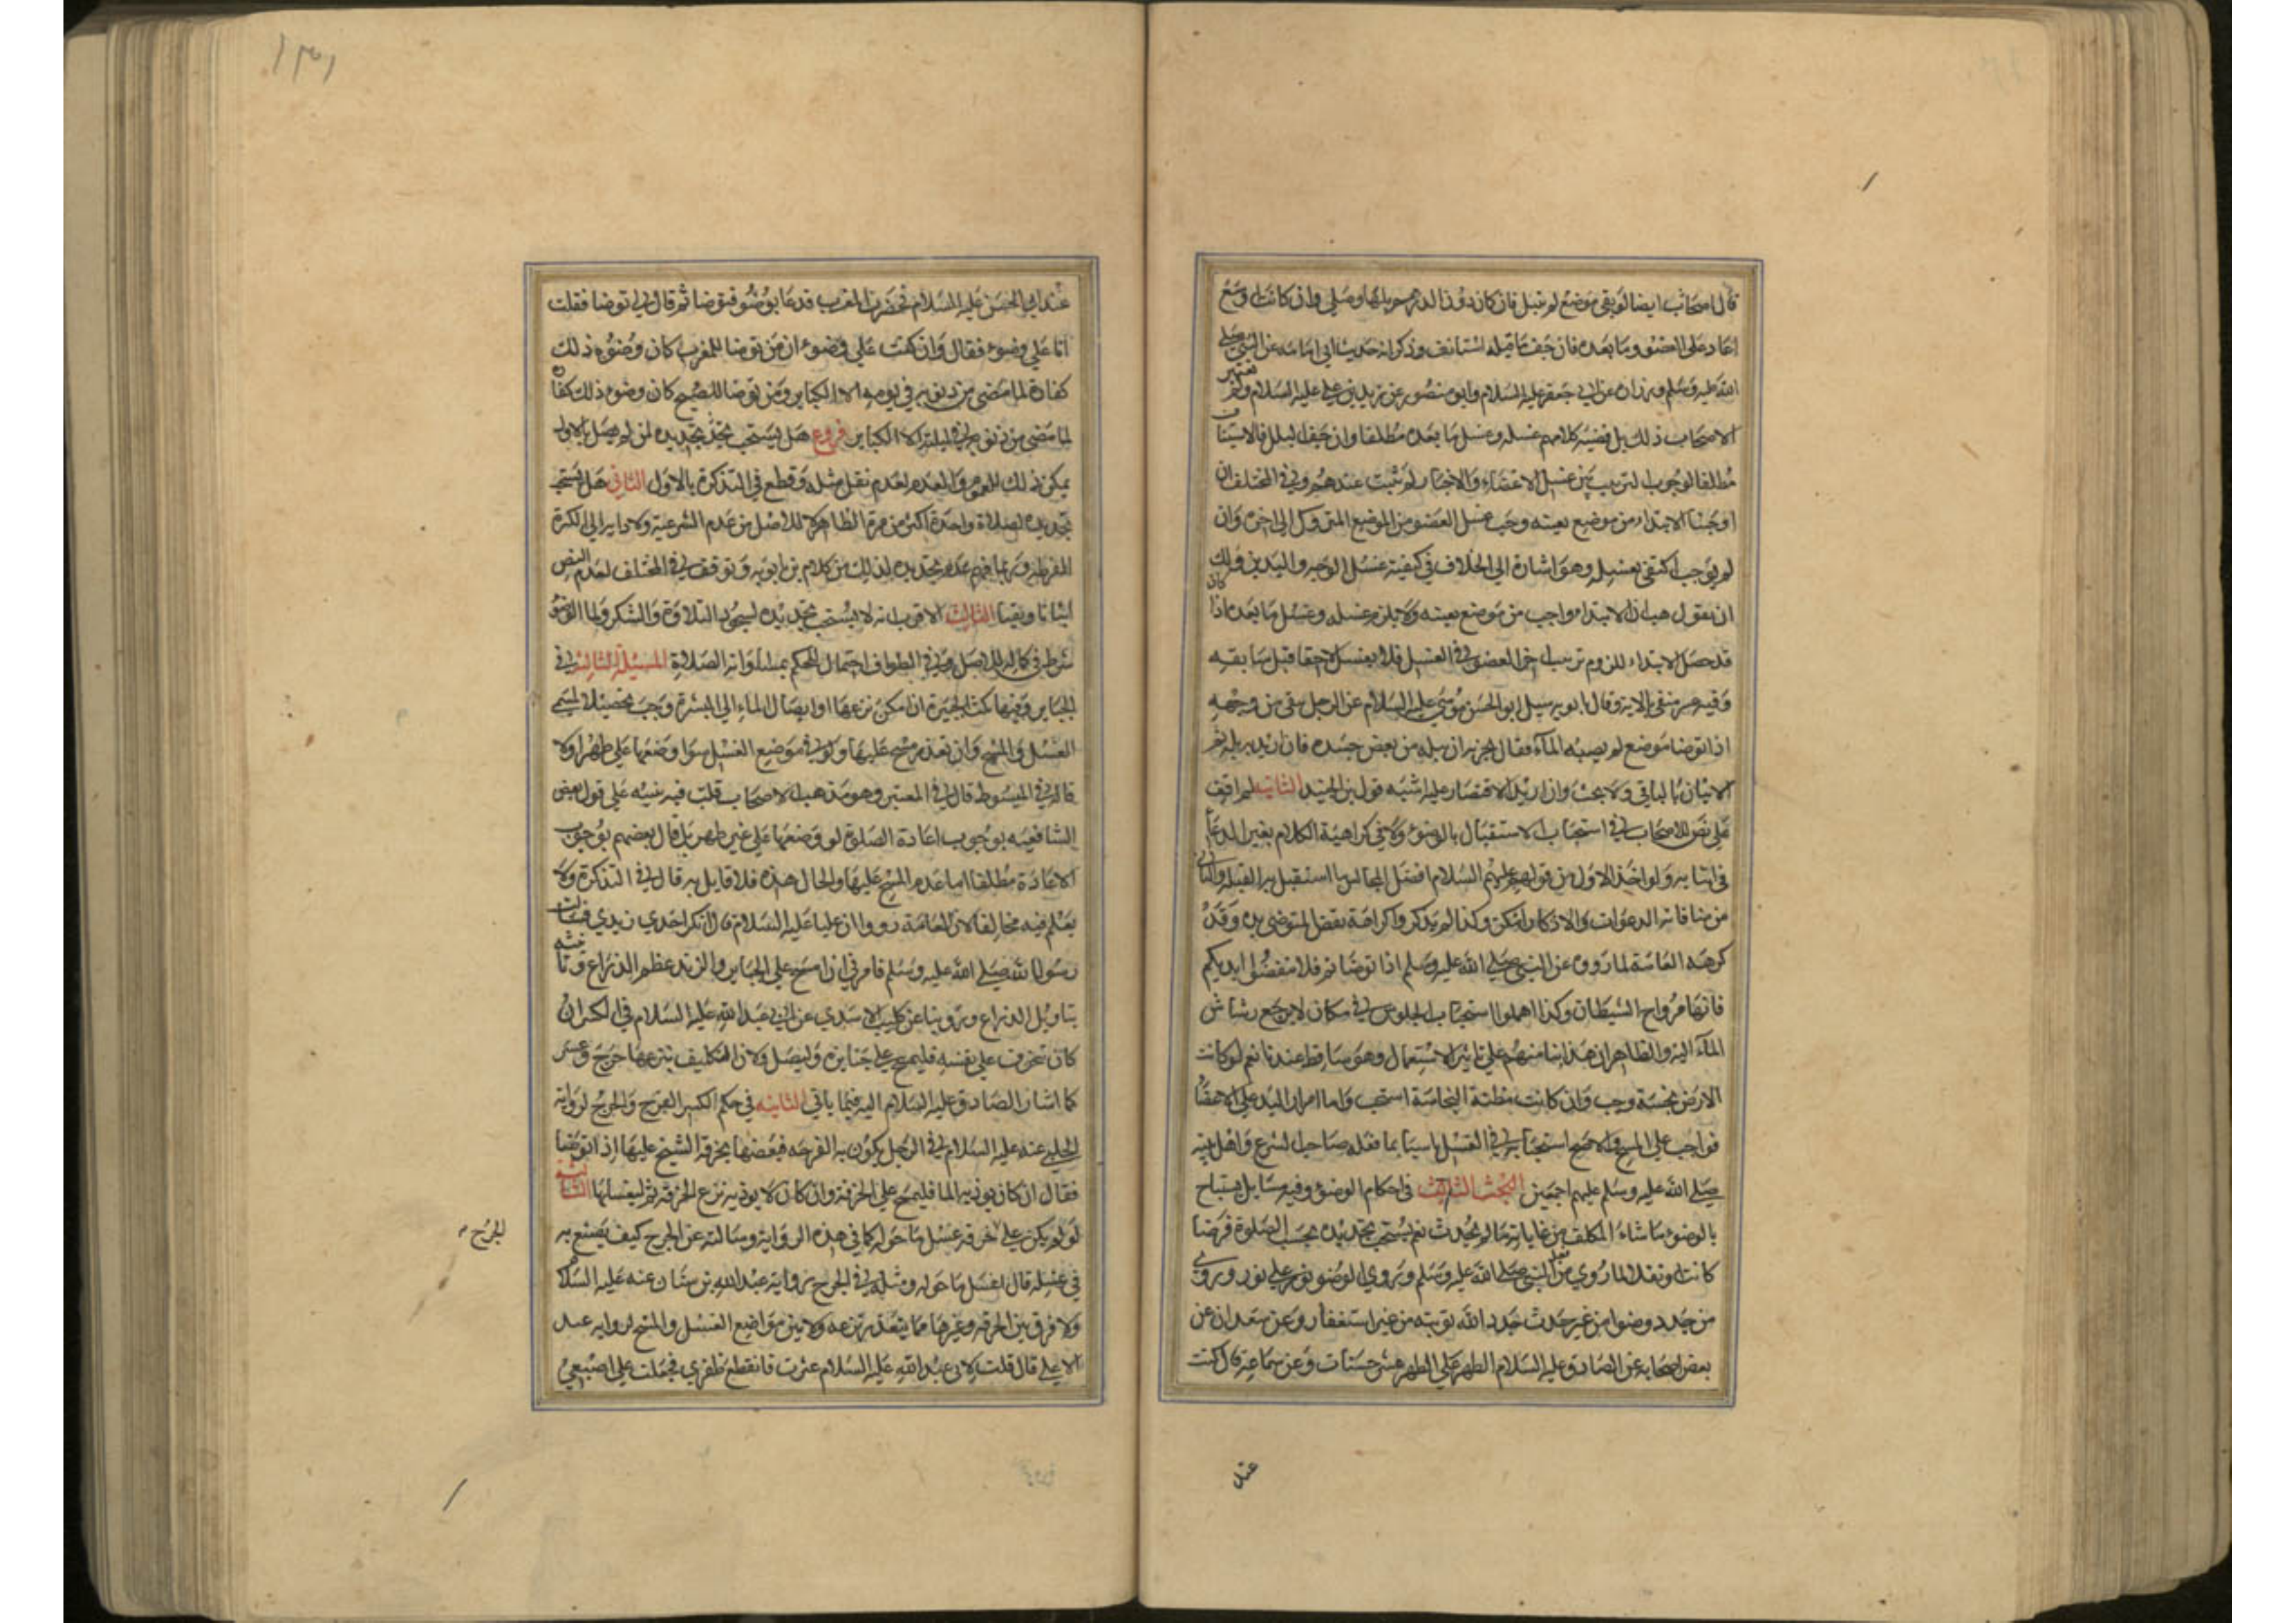 قال صاحب ايضا لو بقي موضع لم يبتل فان كان دون الدرهم بلها وصلى وان كانت اوسع
اعاد على العضو وما بعده فان جف ما قبله استانف وذكر انه حديث ابي امامة عن النبي صلى
الله عليه وسلم وزرارة عن ابي جعفر عليه السلام وابو منصور عن زيد بن علي عليه السلام ولم يعتبر
الاصحاب ذلك بل قضية كلامهم غسله وغسل ما بعده مطلقا وان جف البلل فالاستيناف
مطلقا لوجوب الترتيب بين غسل الاعضاء والاخبار لم تثبت عندهم وفي المختلف ان
اوجبنا الابتداء من موضع بعينه وجب غسل العضو من الموضع المتروك الى اخره وان
لم يوجب اكتفى بغسله وهو اشارة الى الخلاف في كيفية غسل الوجه واليدين ولك
ان تقول هب ان الابتداء واجب من موضع بعينه ولا يلزم غسله وغسل ما بعده اذا كان
قد حصل الابتداء للزوم ترتيب اخر العضو في الغسل فلا يغسل لاحقا قبل سابقه
وفيه من منقى الاية وقال بابويه سيل ابو الحسن موسى عليه السلام عن الرجل يبقى من وجهه
اذا توضا موضع لم يصبه الماء فقال يجزيه ان يبله من بعض جسده فان اريد به بله ثم
الاتيان بالباقي ولا بحث وان اريد الاقتصار عليه اشبه قول ابن الجنيد الثانية لم اقف
على نص للاصحاب في استحباب الاستقبال بالوضوء ولا في كراهية الكلام بغير الدعاء
في اثنايه ولو اخذ الاول من قولهم عليهم السلام افضل المجالس ما استقبل به القبلة والثاني
من منافاته الدعوات والاذكار امكن وكذا لم يذكروا كراهة نفض المتوضي يده وقد
كرهه العامة لما رووه عن النبي صلى الله عليه وسلم اذا توضاتم فلا تنفضوا ايديكم
فانها مراوح الشيطان وكذا اهملوا استحباب الجلوس في مكان لا يرجع رشاش
الماء اليه والظاهر ان هذا بنا منهم على تاثير الاستعمال وهو ساقط عندنا نعم لو كانت
الارض نجسة وجب وان كانت مظنة النجاسة استحب واما امرار اليد على الاعضا
فواجب على المسح والاصح استحبابه في الغسل تاسيا بما فعله صاحب الشرع واهل بيته
صلى الله عليه وسلم عليهم اجمعين البحث الثالث في احكام الوضوء وفيه مسايل يستباح
بالوضوء ما شاء المكلف من غاياته ما لم يحدث نعم يستحب تجديده بحسب الصلوة فرضا
كانت او نفلا لما روي من فعل النبي صلى الله عليه وسلم وروي الوضوء نور على نور وروي
من جدد وضوا من غير حدث جدد الله توبته من غير استغفار وعن سعدان عن
بعض اصحابه عن الصادق عليه السلام الطهر على الطهر عشر حسنات وعن سماعة قال كنت
عند
١٣١
عند ابي الحسن عليه السلام فحضرت المغرب فدعا بوضوء فتوضا ثم قال لي توضا فقلت
انا على وضوء فقال وان كنت على وضوء ان من توضا للمغرب كان وضوءه ذلك
كفارة لما مضى من ذنوبه في يومه الا الكباير ومن توضا للصبح كان وضوء ذلك كفارة
لما مضى من ذنوبه في ليلته الا الكباير فروع هل يستحب تجديده لمن لم يصل بالاول
يمكن ذلك للعموم والعدم لعدم نقل مثله وقطع في التذكرة بالاول الثاني هل يستحب
تجديده لصلاة واحدة اكثر من مرة الظاهر لا للاصل من عدم الشرعية ولادايه الى الكثرة
المفرطة وربما فهم عدم تجديده لذلك من كلام بن بابويه وتوقف في المختلف لعدم النص
اثباتا ونفيا الثالث الاقرب انه لا يستحب تجديده لسجود التلاوة والشكر ولما الوضوء
شرط في كماله للاصل وفي الطواف احتمال للحكم بمساواته الصلاة المسئلة الثانية في
الجباير وفيها كث الجبيرة ان امكن نزعها او ايصال الماء الى البشرة وجب تحصيلا لمسمى
الغسل والمسح وان تعذر مسح عليها ولو في موضع الغسل سوا وضعها على طهر او لا
قاله في المبسوط قال في المعتبر وهو مذهب الاصحاب قلت فيه تنبيه على قول بعض
الشافعيه بوجوب اعادة الصلوة لو وضعها على غير طهر بل قال بعضهم بوجوب
الاعادة مطلقا اما عدم المسح عليها والحال هذه فلا قايل به قال في التذكرة ولا
يعلم فيه مخالفا لان العامة رووا ان عليا عليه السلام قال انكسر احدى زندي فسالت
رسول الله صلى الله عليه وسلم فامرني ان امسح على الجباير والزند عظم الذراع وتانيثه
بتاويل الذراع وروينا عن كليب الاسدي عن ابي عبد الله عليه السلام في الكسر ان
كان تخوف على نفسه فليمسح على جبايره وليصل ولان التكليف بنزعها حرج وعسر
كما اشار الصادق عليه السلام اليه فيما ياتي الثانية في حكم الكسر القرح والجرح لرواية
الحلبي عنه عليه السلام في الرجل يكون به القرحه فيعصبها بخرقة الشيخ عليها اذا توضا
فقال ان كان يوذيه الما فليمسح على الخرقة وان كان لا يوذيه نزع الخرقة ثم ليغسلها الثالثة
لو لم يكن على خرقة غسل ما حوله كما في هذه الرواية وسالته عن الجرح كيف يصنع به
الجرح
في غسله قال اغسل ما حوله ومثله في الجرح برواية عبد الله بن سنان عنه عليه السلام
ولا فرق بين الخرقه وغيرها مما يتعذر نزعه ولا بين مواضع الغسل والمسح لروايه عبد
الاعلى قال قلت لابي عبد الله عليه السلام عثرت فانقطع ظفري فجعلت على اصبعي